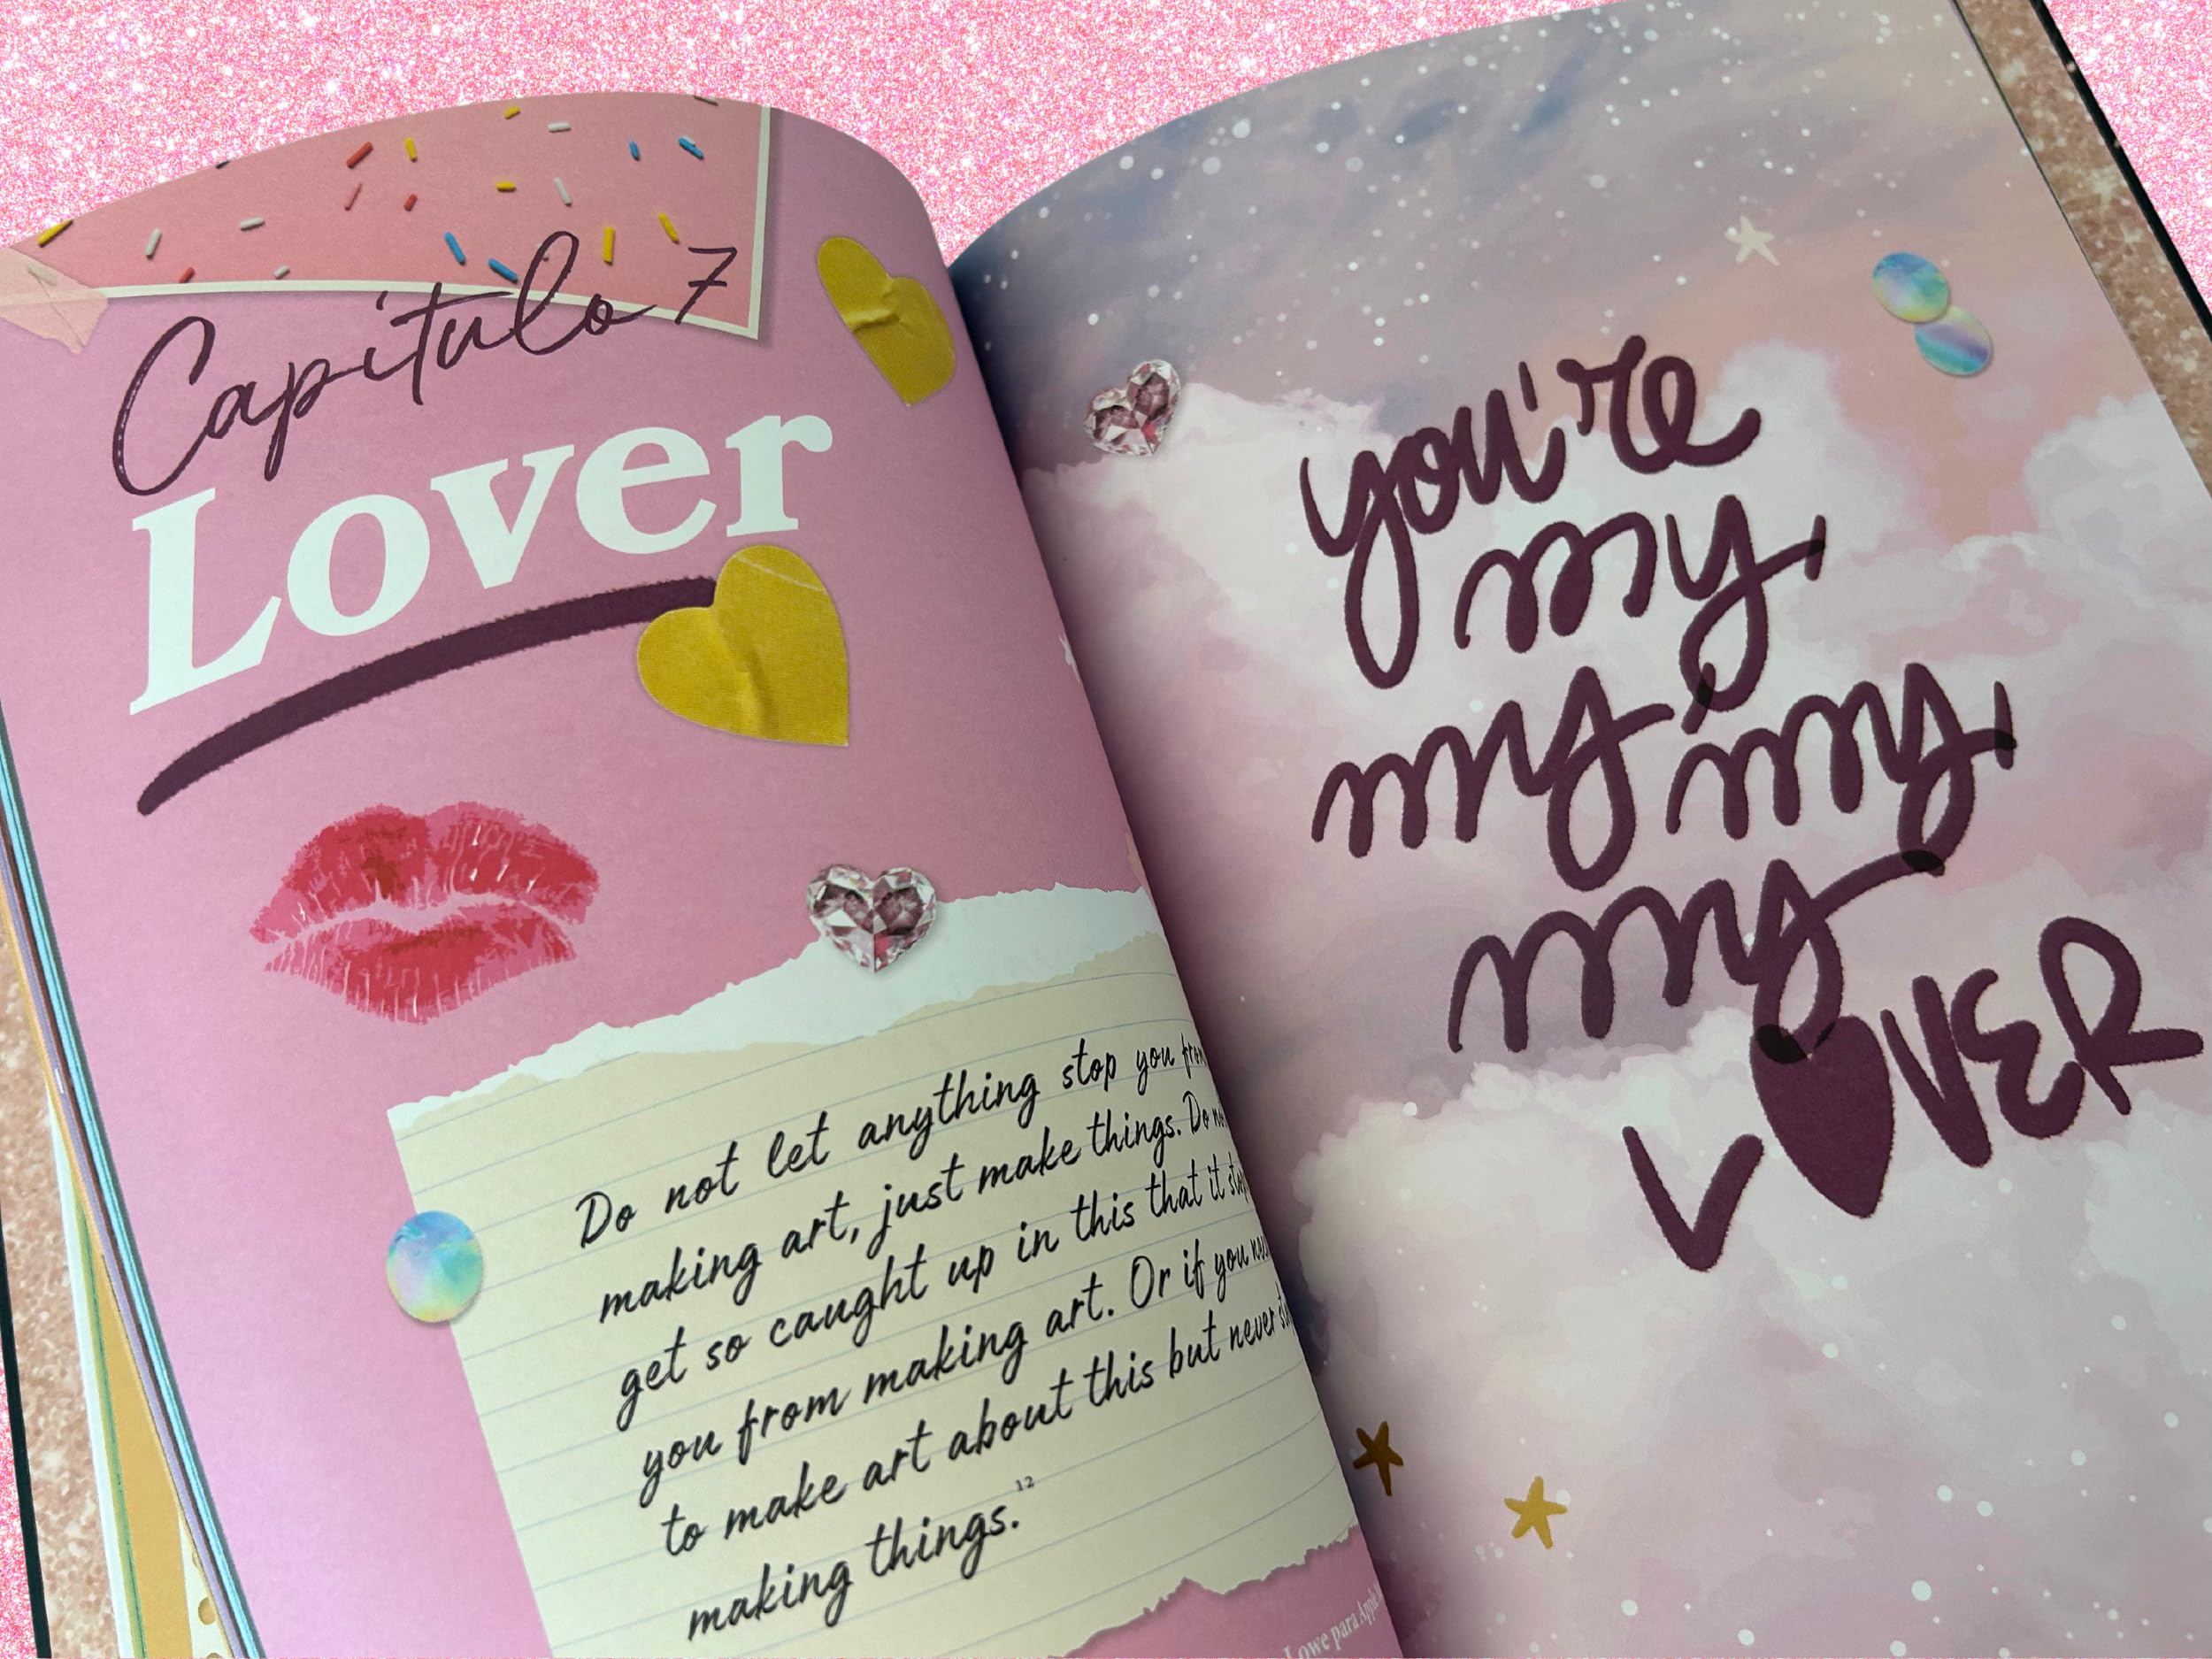 Capítulo 7
Lover
Do not let anything stop you from
making art, just make things. Do not
get so caught up in this that it stop
you from making art. Or if you
to make art about this but never
making things.12
Lowe para Apple
you're
my,
my my,
my
LOVER